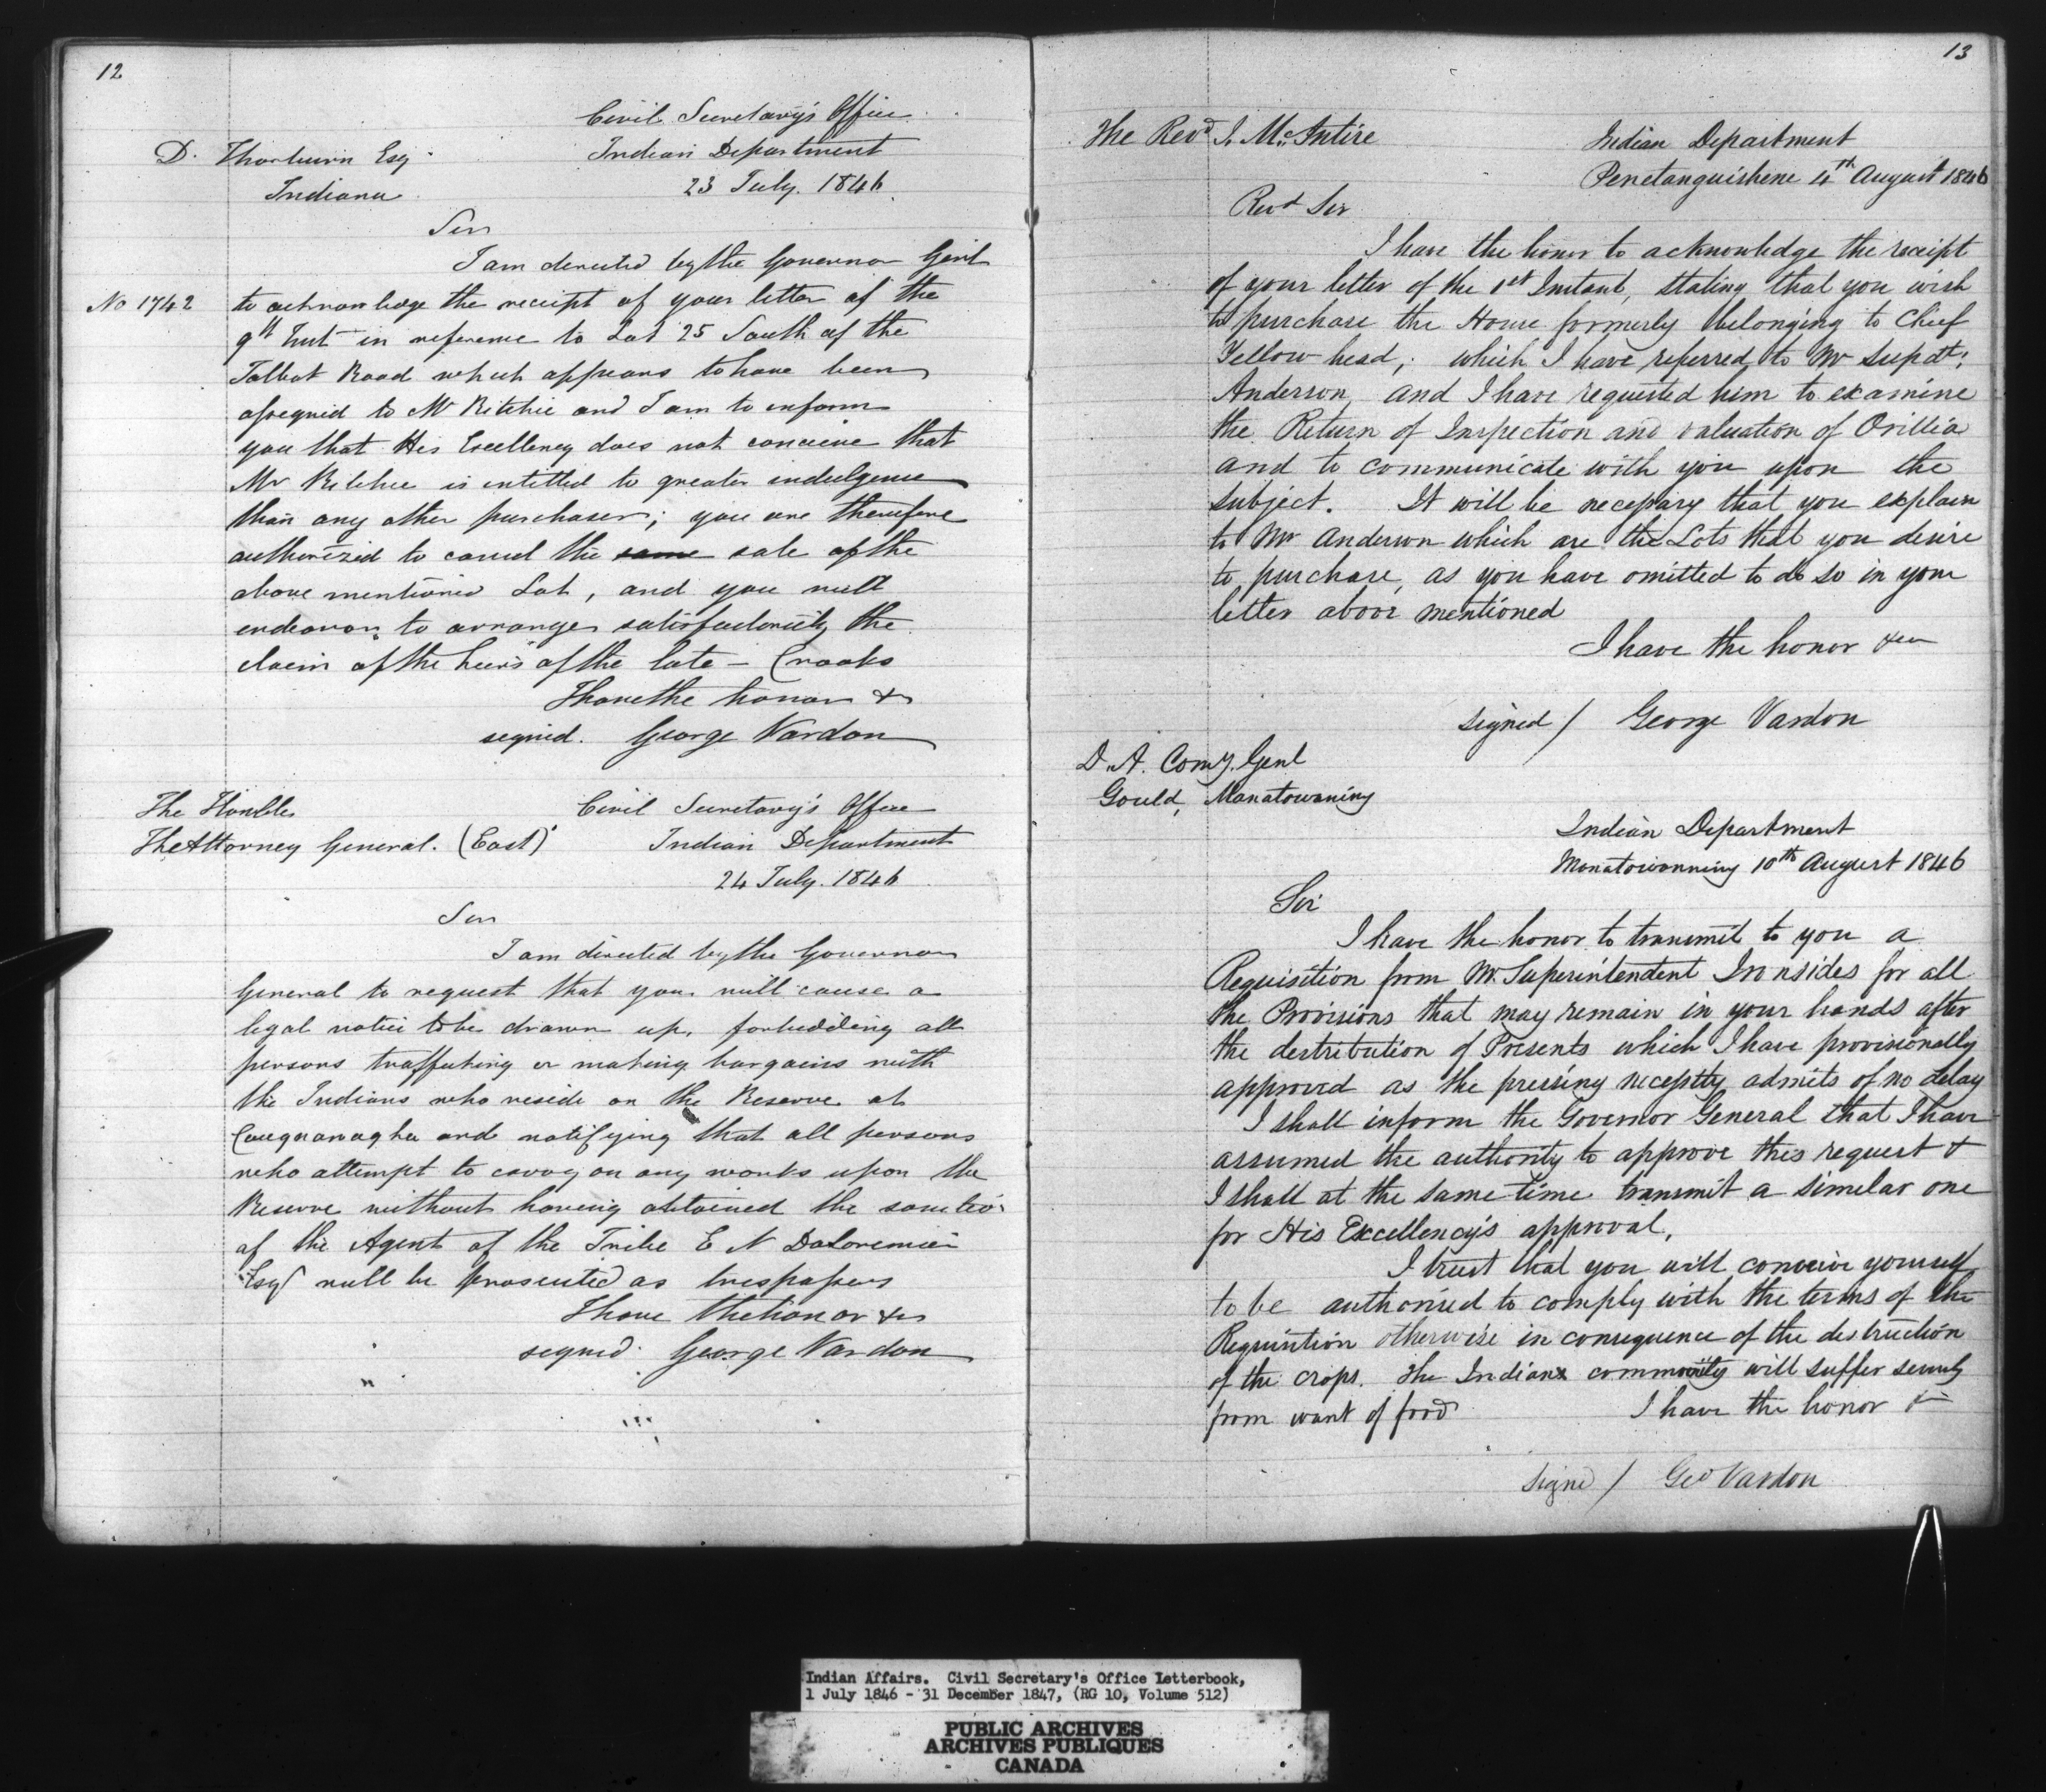 12
Civil Secretary's Office
D. Thorburn Esq
Indian Department
Indiana
23 July. 1846
Sir
I am directed by the Governor Genl
No 1742
to acknowledge the receipt of your letter of the
9th Inst in reference to Lot 25 South of the
Talbot Road which appears to have been
assigned to Mr Ritchie and I am to inform
you that His Excellency does not conceive that
Mr Ritchie is entitled to greater indulgence
than any other purchaser; you are therefore
authorized to cancel the same sale of the
above mentioned Lot, and you will
endeavor to arrange satisfactorily the
claim of the heirs of the late — Crooks
I have the honor &c
signed. George Vardon
The Honble
The Attorney General. (East)
Civil Secretary's Office
Indian Department
24 July. 1846
Sir
I am directed by the Governor
General to request that you will cause a
legal notice to be drawn up, forbidding all
persons trafficking or making bargains with
the Indians who reside on the Reserve at
Caugnanagha and notifying that all persons
who attempt to carry on any works upon the
Reserve without having obtained the sanction
of the Agent of the Tribe E N DeLorimier
Esq will be prosecuted as trespassers
I have the honor &c
signed. George Vardon
13
The Revd J. McIntire
Indian Department
Penetanguishene 4th August 1846
Revd Sir
I have the honor to acknowledge the receipt
of your letter of the 1st Instant, stating that you wish
to purchase the House formerly belonging to Chief
Yellow head; which I have referred to Mr Supdt:
Anderson, and I have requested him to examine
the Return of Inspection and valuation of Orillia
and to communicate with you upon the
subject. It will be necessary that you explain
to Mr Anderson which are the Lots that you desire
to purchase, as you have omitted to do so in your
letter above mentioned
I have the honor &c
signed / George Vardon
D. A. Comy. Genl
Gould, Manatowaning
Indian Department
Manatowanning 10th August 1846
Sir
I have the honor to transmit to you a
Requisition from Mr. Superintendent Ironsides for all
the Provisions that may remain in your hands after
the destribution of Presents which I have provisionally
approved as the pressing necessity admits of no delay
I shall inform the Governor General that I have
assumed the authority to approve this request &
I shall at the same time transmit a similar one
for His Excellency's approval,
I trust that you will conceive yourself
to be authorised to comply with the terms of the
Requisition otherwise in consequence of the destruction
of the crops. The Indian community will suffer severely
from want of food
I have the honor &c
Signed / Geo Vardon
Indian Affairs. Civil Secretary's Office Letterbook,
1 July 1846 - 31 December 1847, (RG 10, Volume 512)
PUBLIC ARCHIVES
ARCHIVES PUBLIQUES
CANADA